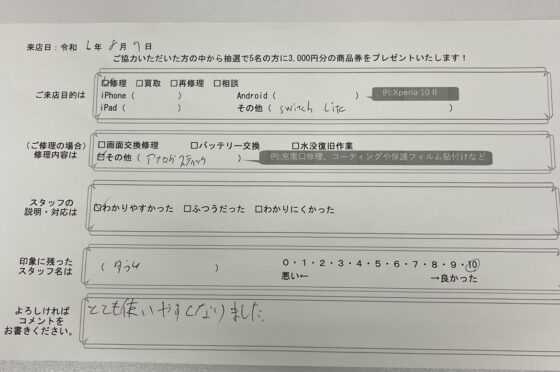 来店日：令和 6年 8月 7日
ご協力いただいた方の中から抽選で5名の方に3,000円分の商品券をプレゼントいたします！
ご来店目的は
☑修理 □買取 □再修理 □相談
iPhone（ ） Android（ ） 例:Xperia 10Ⅱ
iPad（ ） その他（ switch Lite ）
（ご修理の場合）
修理内容は
□画面交換修理 □バッテリー交換 □水没復旧作業
☑その他（ アナログスティック ） 例:充電口修理、コーティングや保護フィルム貼付けなど
スタッフの
説明・対応は
☑わかりやすかった □ふつうだった □わかりにくかった
印象に残った
スタッフ名は
（ ）
0・1・2・3・4・5・6・7・8・9・10
悪い← →良かった
よろしければ
コメントを
お書きください。
とても使いやすくなりました。